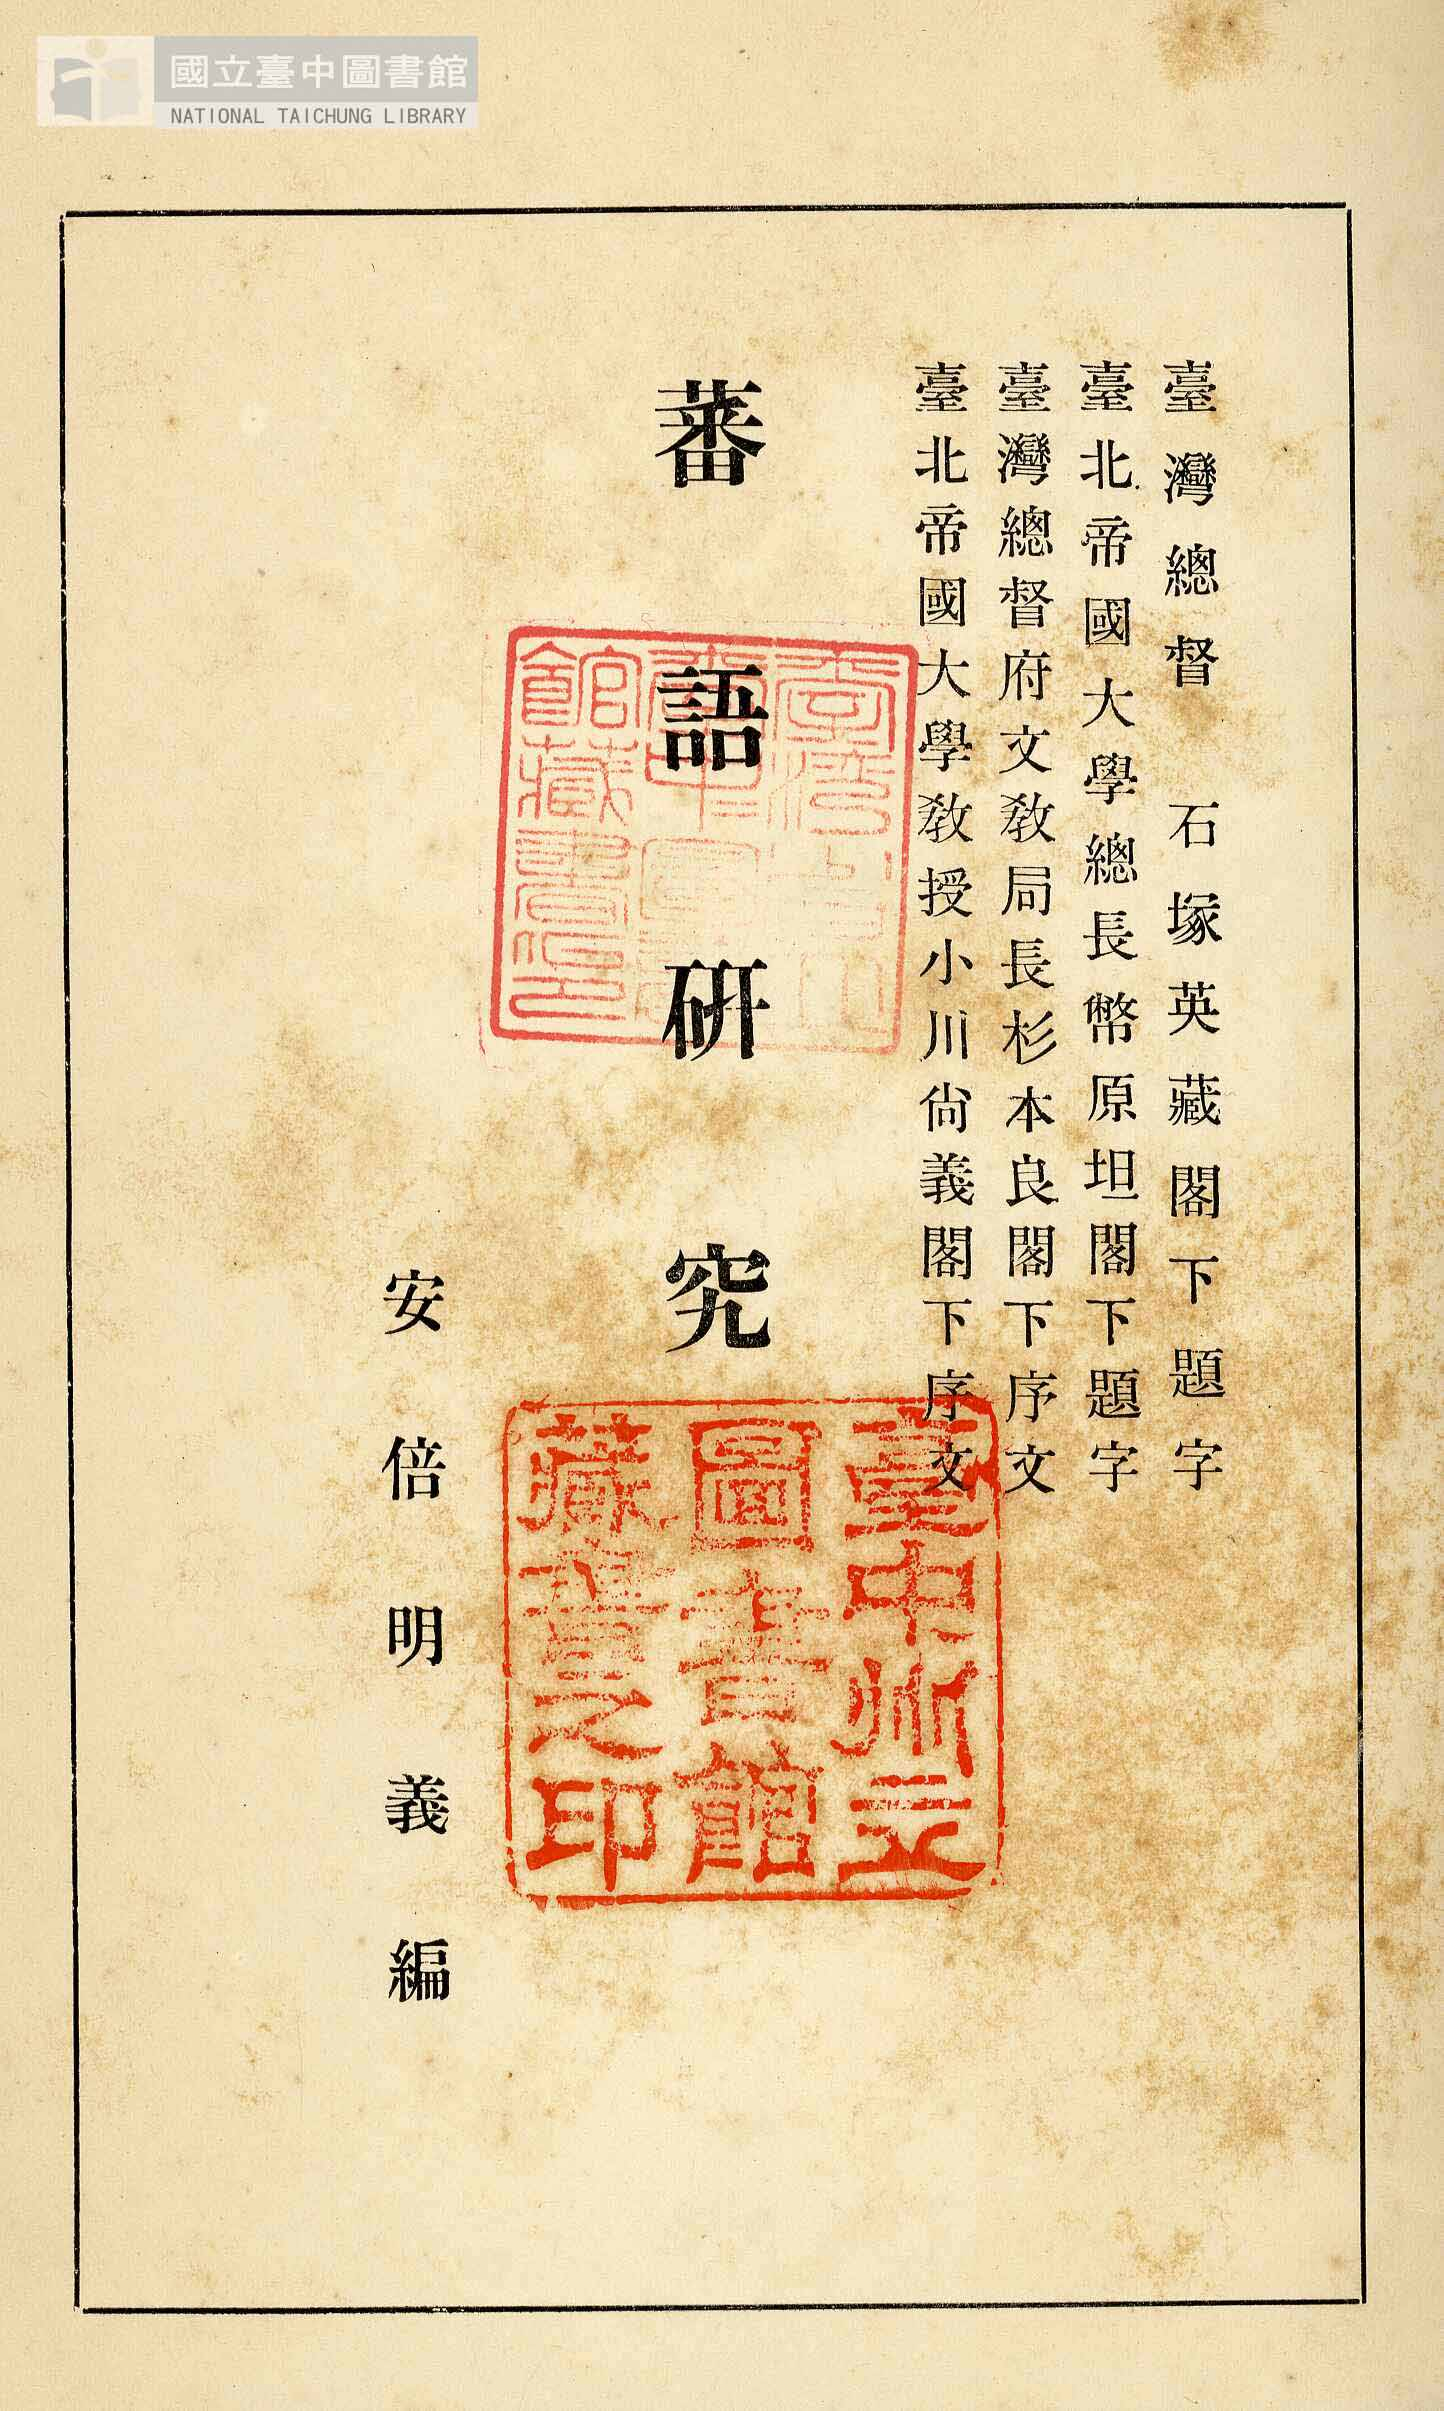 國立臺中圖書館
NATIONAL TAICHUNG LIBRARY
臺灣總督 石塚英藏閣下題字
臺北帝國大學總長幣原坦閣下題字
臺灣總督府文敎局長杉本良閣下序文
臺北帝國大學敎授小川尙義閣下序文
蕃語硏究
安倍明義編
臺灣省立
臺中圖書
館藏書印
臺中州立
圖書館
藏書之印